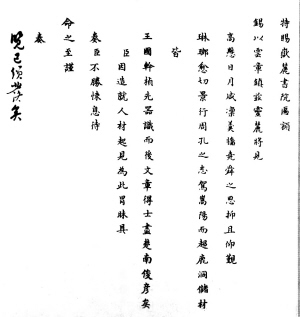 特賜嶽麓書院匾額
錫以雲章鎮茲靈麓將見
高懸日月咸深美牆堯舜之思抑且仰觀
琳瑯愈切景行周孔之志駕嵩陽而超鹿洞儲材
皆
王國幹楨先器識而後文章得士盡是南俊彥矣
臣因造就人材起見為此冒昧具
奏臣不勝悚息待
命之至謹
奏